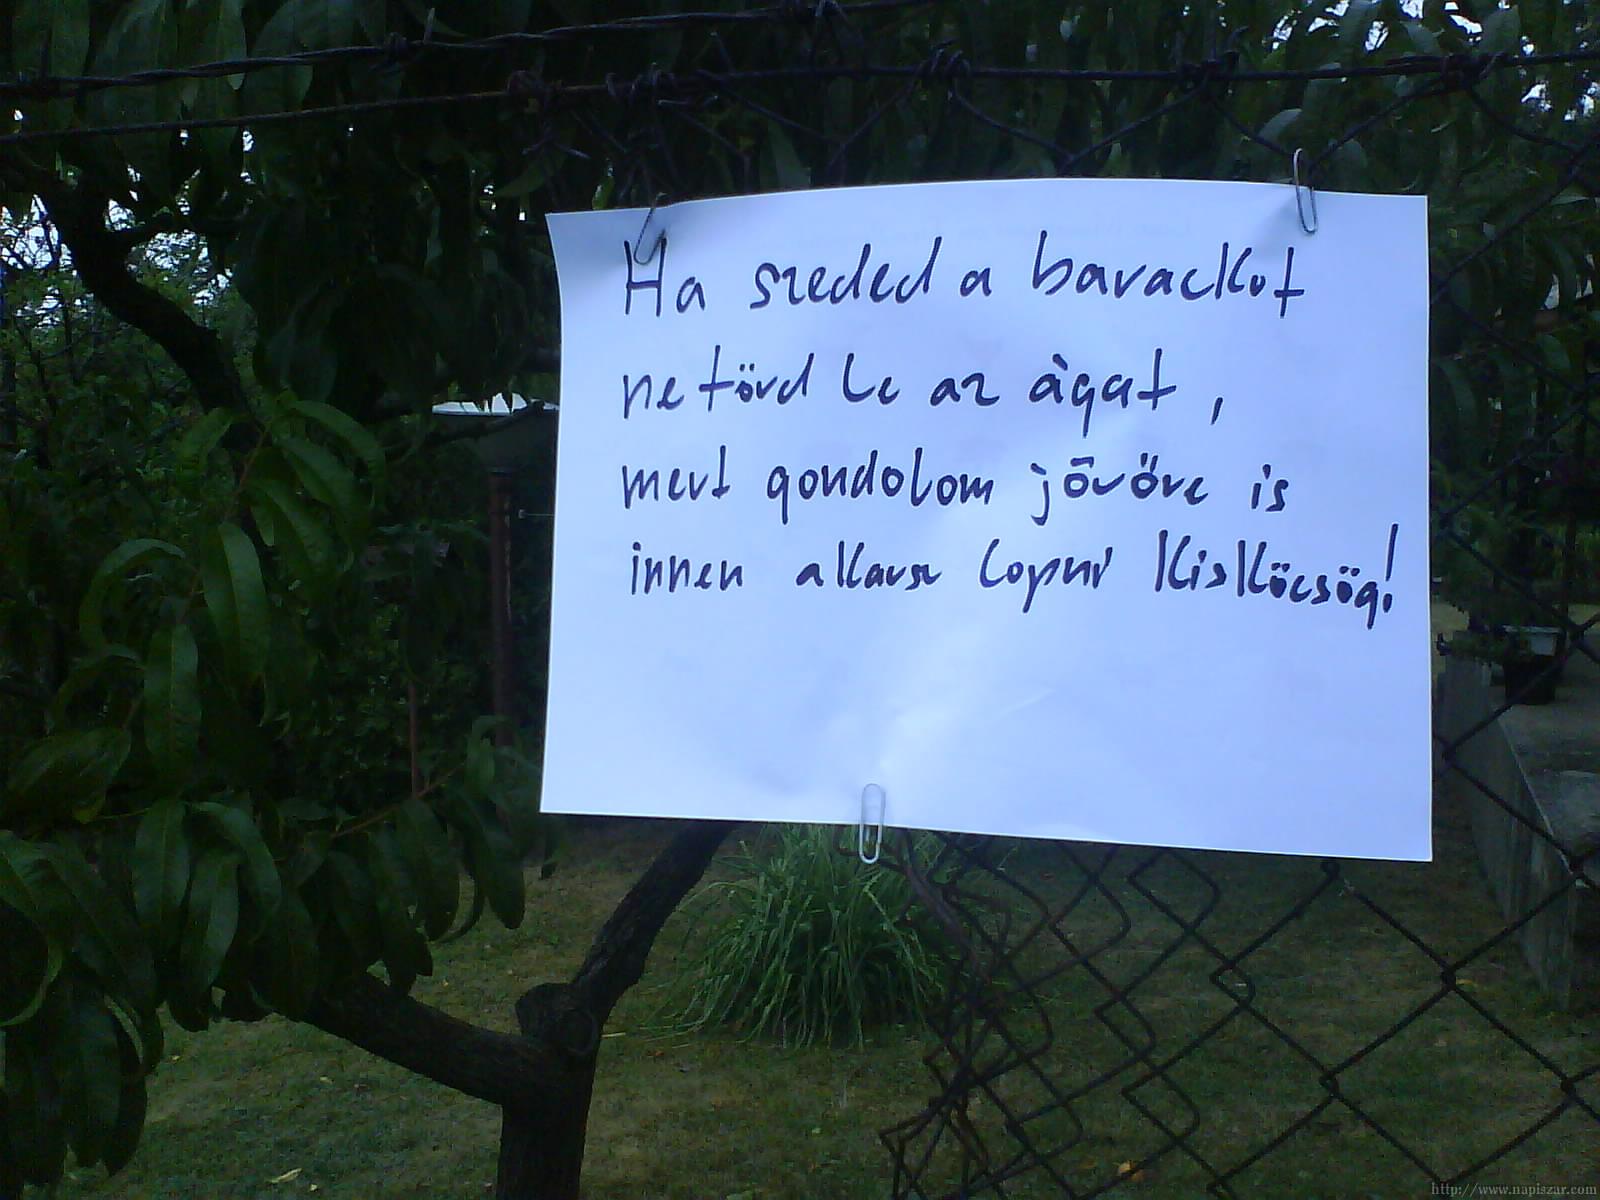 Ha szeded a barackot
ne törd le az ágat,
mert gondolom jövőre is
innen akarsz lopni kisköcsög!
http://www.napiszar.com